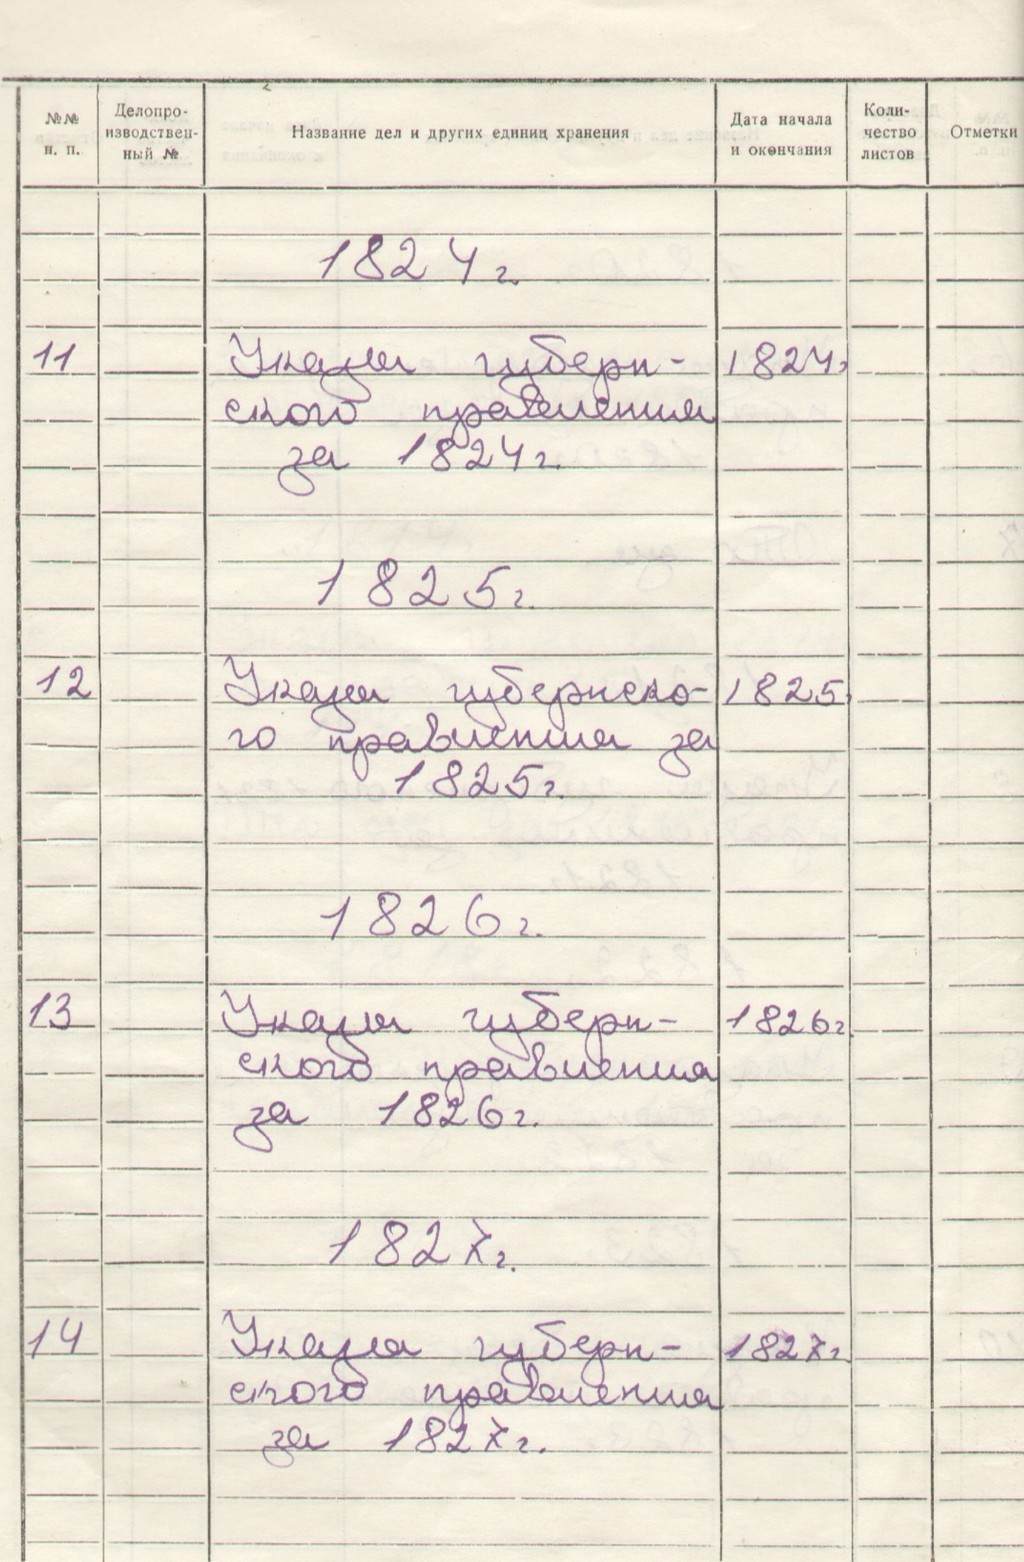 №№ н. п.
Делопро-
изводствен-
ный №
Название дел и других единиц хранения
Дата начала
и окончания
Коли-
чество
листов
Отметки
1824 г.
11 Указы губерн- 1824г
ского правления
за 1824г.
1825г.
12 Указы губернско- 1825г
го правления за
1825г.
1826г.
13 Указы губерн- 1826г
ского правления
за 1826г.
1827г.
14 Указы губерн- 1827г
ского правления
за 1827г.